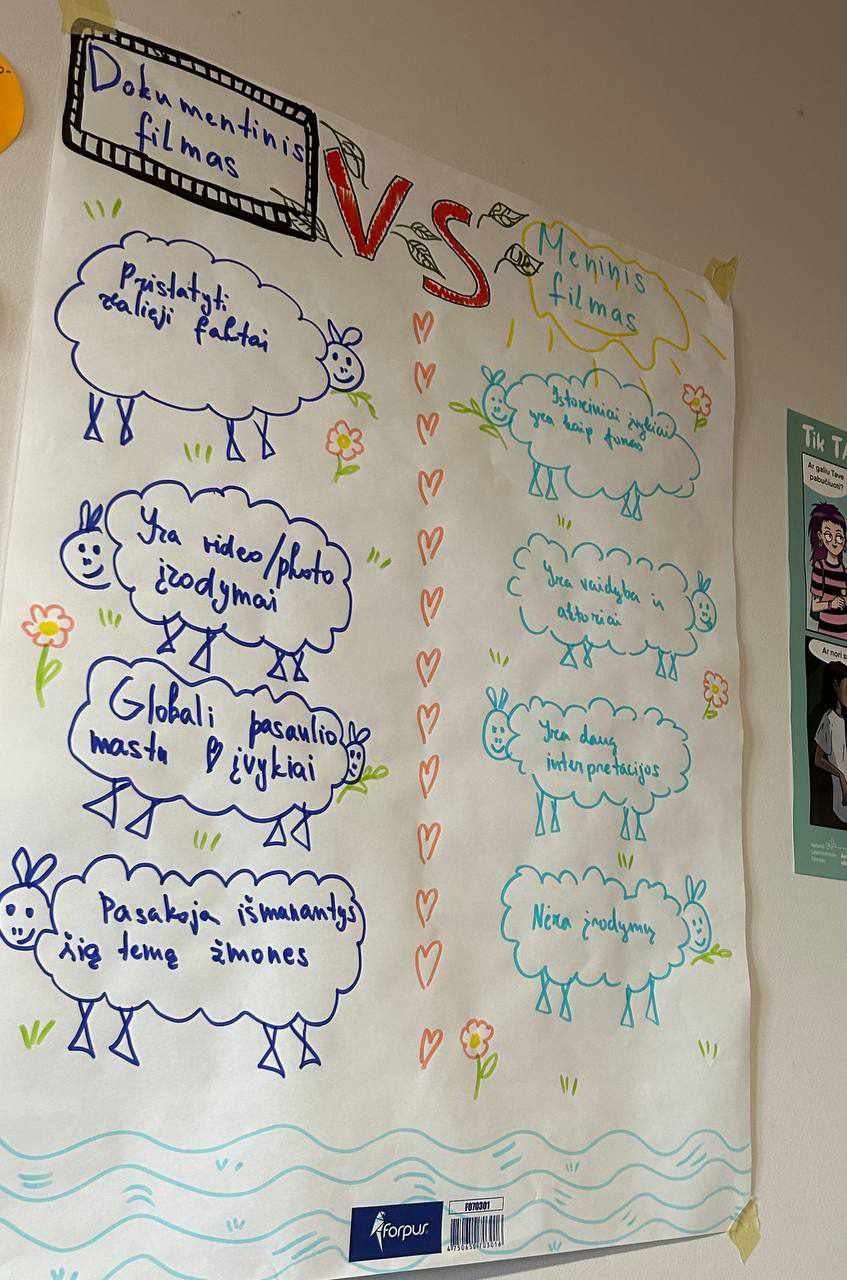 Dokumentinis
filmas
VS
Meninis
filmas
Pristatyti
realieji faktai
Yra video/photo
įrodymai
Globali pasaulio
mastu įvykiai
Pasakoja išmanantys
šią temą žmones
Istoriniai įvykiai
yra kaip fonas
Yra vaidyba ir
aktoriai
Yra daug
interpretacijos
Nėra įrodymų
Tik TA
Ar galiu Tave
pabučiuoti?
Ar nori s
forpus
F070301